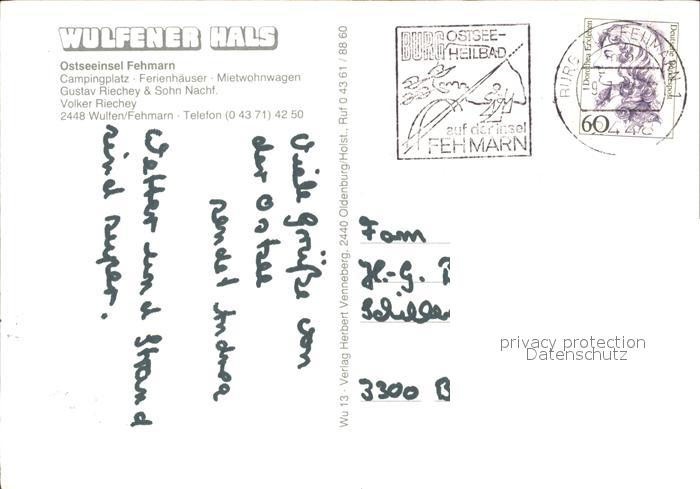 WULFENER HALS
Ostseeinsel Fehmarn
Campingplatz · Ferienhäuser · Mietwohnwagen
Gustav Riechey & Sohn Nachf.
Volker Riechey
2448 Wulfen/Fehmarn · Telefon (0 43 71) 42 50
Viele Grüße von
der Ostsee
sendet Andrea
Wetter und Strand
sind super.
Wu 13 · Verlag Herbert Venneberg, 2440 Oldenburg/Holst., Ruf 0 43 61 / 88 60
BURG OSTSEE-
HEILBAD
auf der Insel
FEHMARN
Deutsche Bundespost
60
Fam
H.-G.
3300 B
privacy protection
Datenschutz